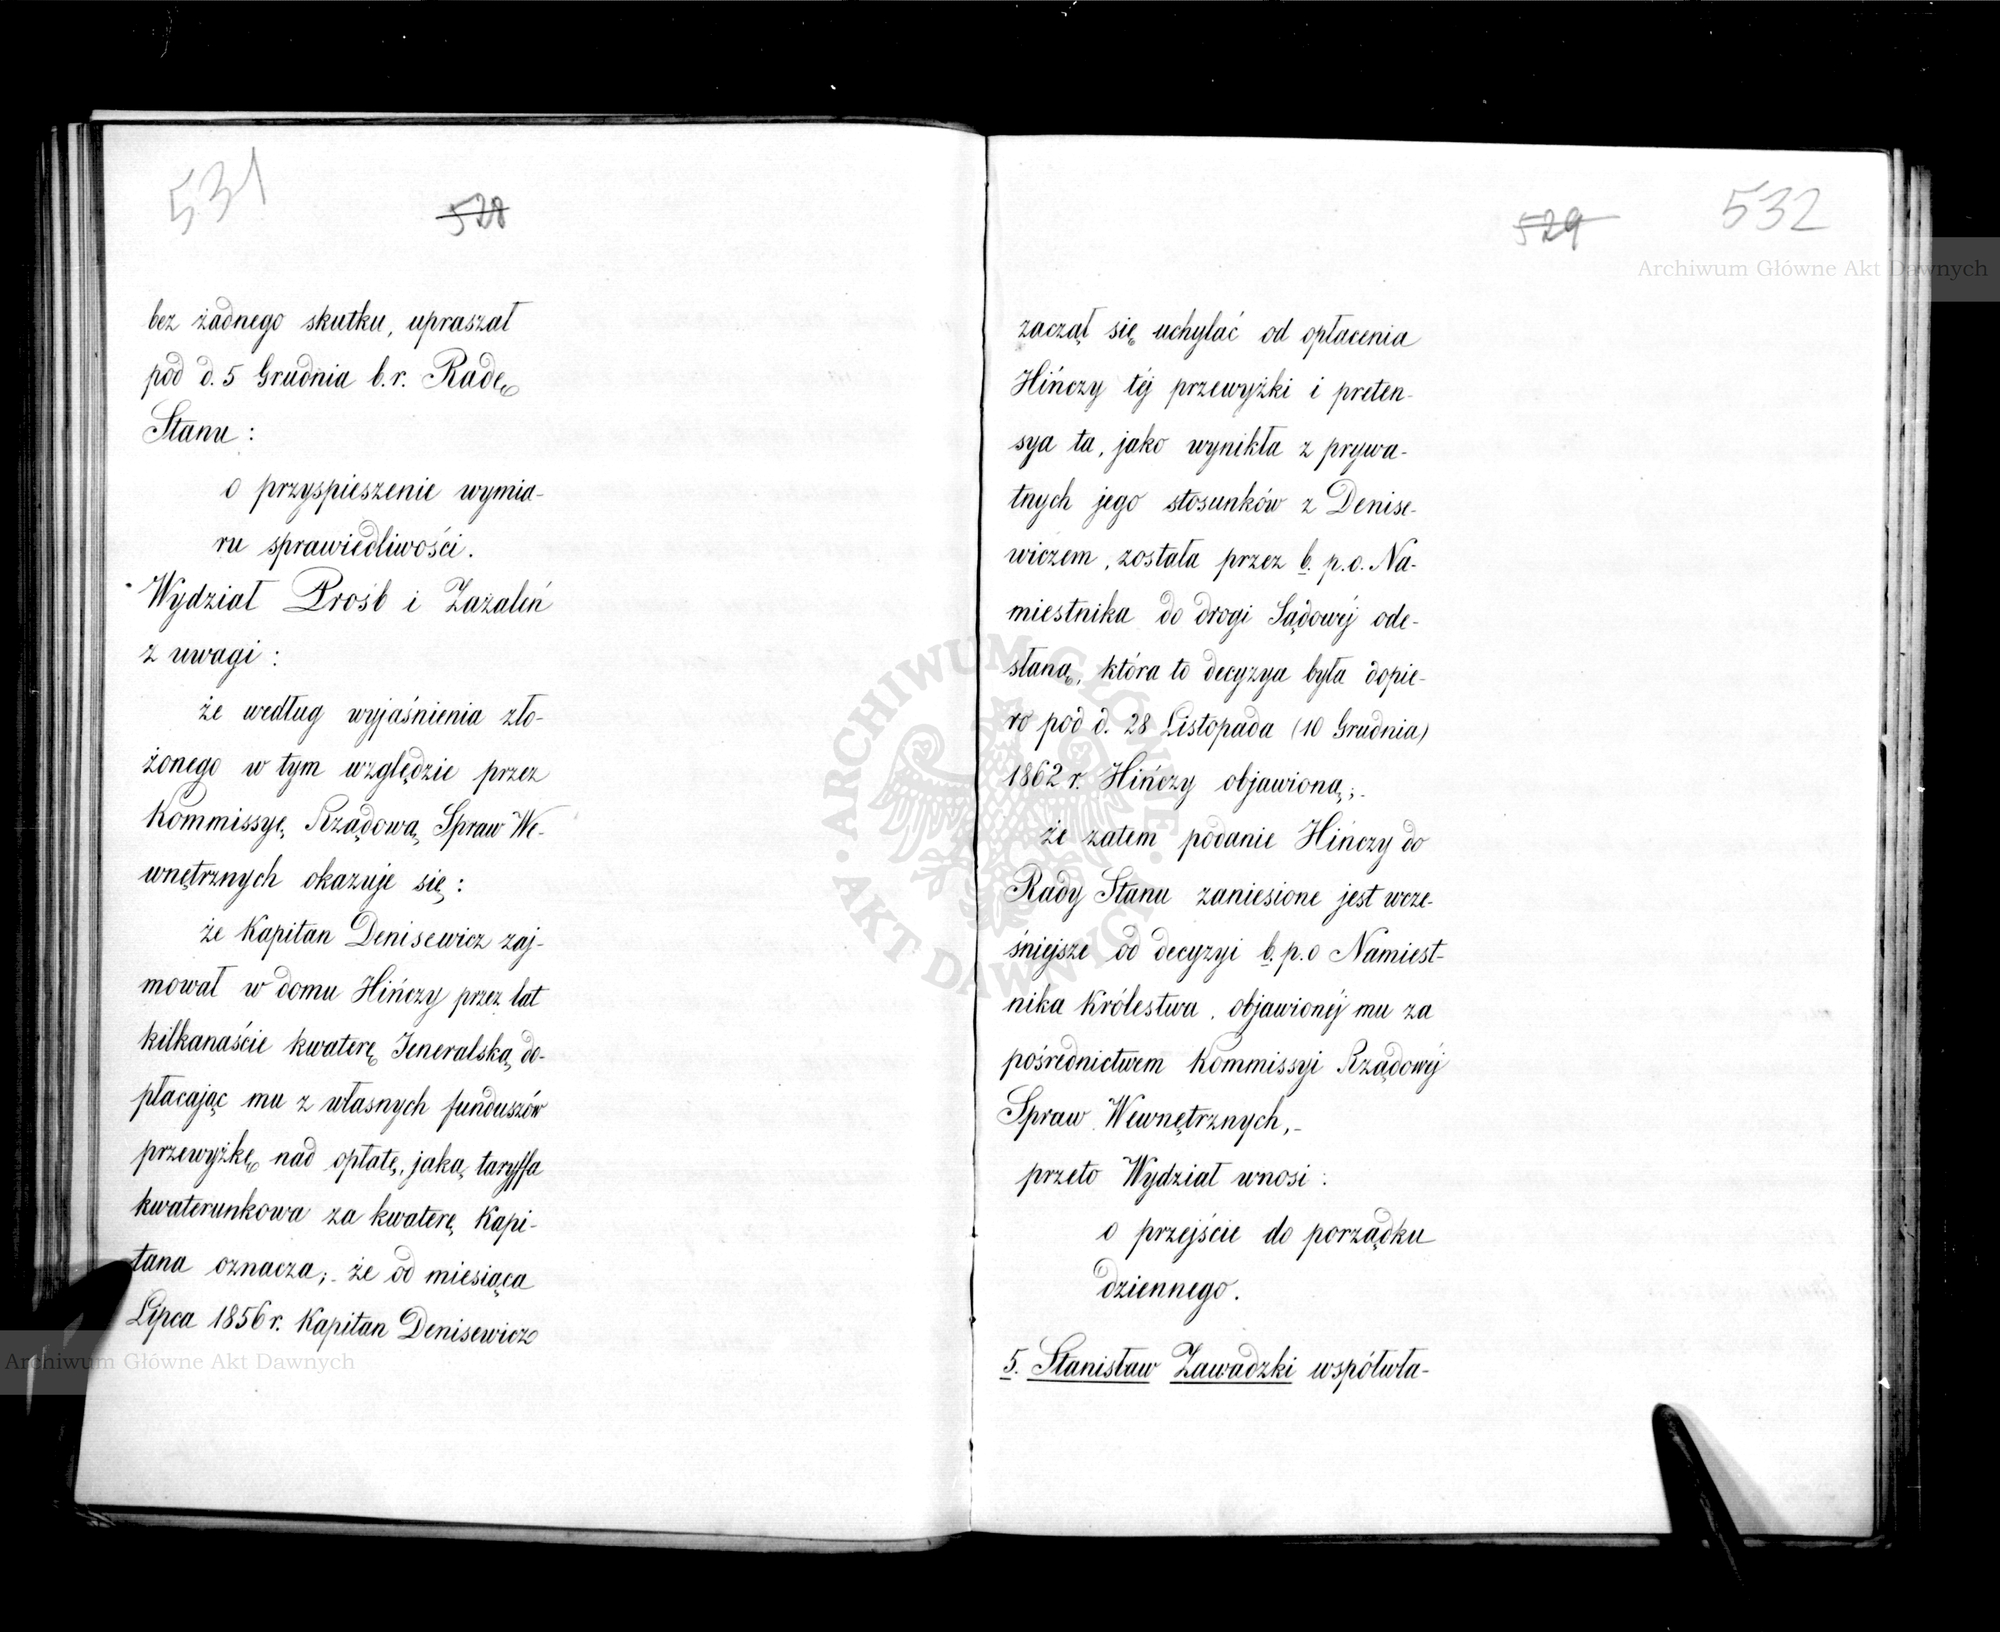 531
528
bez żadnego skutku, upraszał
pod d. 5 Grudnia b.r. Radę
Stanu:
o przyspieszenie wymia-
ru sprawiedliwości.
Wydział Prośb i Zażaleń
z uwagi:
że według wyjaśnienia zło-
żonego w tym względzie przez
Kommissyę Rządową Spraw We-
wnętrznych okazuje się:
że Kapitan Denisewicz zaj-
mował w domu Hińczy przez lat
kilkanaście kwaterę Jeneralską, do-
płacając mu z własnych funduszów
przewyżkę nad opłatę, jaką taryffa
kwaterunkowa za kwaterę Kapi-
tana oznacza; - że od miesiąca
Lipca 1856 r. Kapitan Denisewicz
532
529
zaczął się uchylać od opłacenia
Hińczy téj przewyżki i preten-
sya ta, jako wynikła z prywa-
tnych jego stosunków z Denise-
wiczem, została przez b. p.o. Na-
miestnika do drogi Sądowéj ode-
słaną, która to decyzya była dopie-
ro pod d. 28 Listopada (10 Grudnia)
1862 r. Hińczy objawioną;-
że zatem podanie Hińczy do
Rady Stanu zaniesione jest wcze-
śniejsze od decyzyi b. p.o Namiest-
nika Królestwa, objawionéj mu za
pośrednictwem Kommissyi Rządowéj
Spraw Wewnętrznych,-
przeto Wydział wnosi:
o przejście do porządku
dziennego.
5. Stanisław Zawadzki współwła-
Archiwum Główne Akt Dawnych
ARCHIWUM GŁÓWNE • AKT DAWNYCH •
Archiwum Główne Akt Dawnych